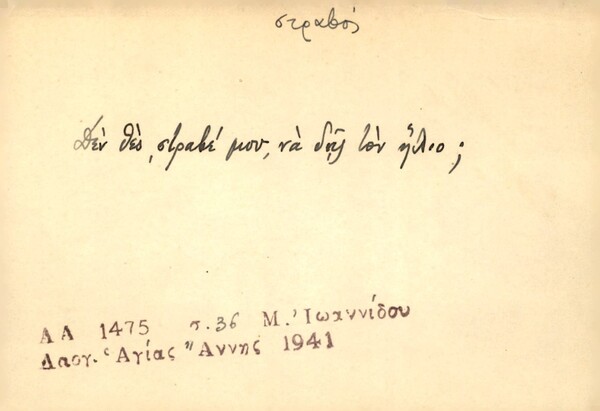 στραβός
Δὲν θὲς, στραβέ μου, νὰ δῇς τὸν ἥλιο;
ΛΑ 1475 σ. 36 Μ. Ἰωαννίδου
Λαογ. Ἁγίας Ἄννης 1941